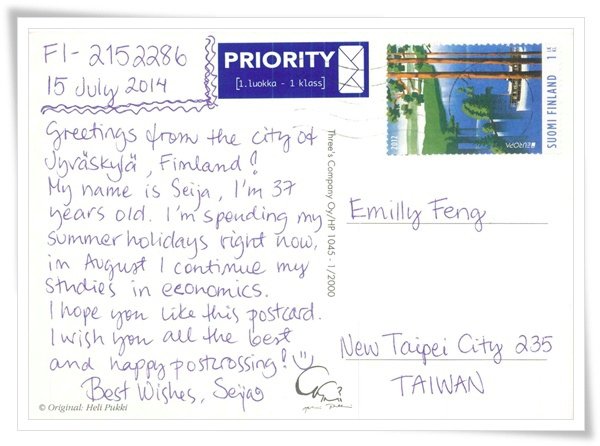 FI-2152286
15 July 2014
PRIORITY
[1.luokka - 1 klass]
Greetings from the city of
Jyväskylä, Finland!
My name is Seija, I'm 37
years old. I'm spending my
summer holidays right now,
in August I continue my
studies in economics.
I hope you like this postcard.
I wish you all the best
and happy postcrossing!
Best Wishes, Seija
© Original: Heli Pukki
Three's Company Oy/HP 1045 - 1/2000
2012
EUROPA
SUOMI FINLAND 1 kl
Emilly Feng
New Taipei City 235
TAIWAN